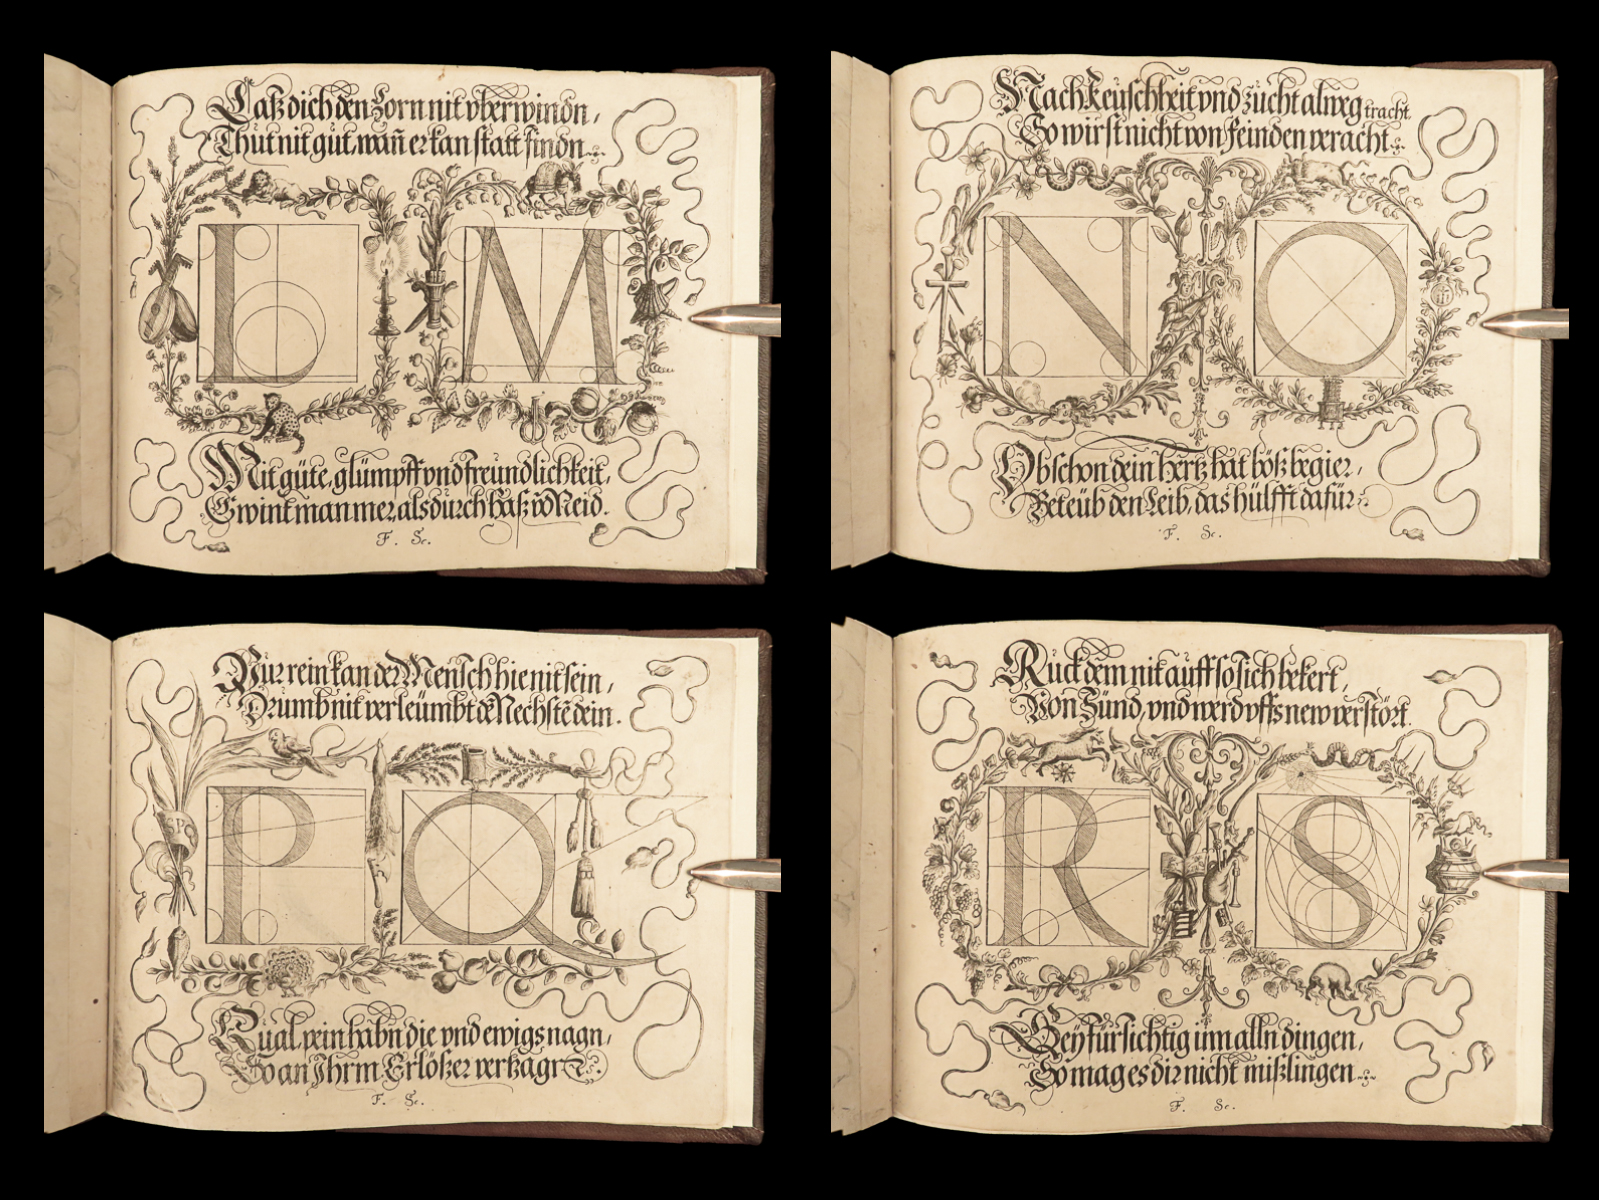 Laß dich den Zorn nit vberwindn,
Thut nit gut, wañ er kan statt findn.
L M
Mit güte, glümpff vnd freundlichkeit,
Gwint man mer als durch Haß vñ Neid.
F. Sc.
Nach Keuschheit vnd zücht alweg tracht
So wirst nicht von feinden veracht.
N O
Ob schon dein hertz hat böß begier,
Beteüb den Leib, das hülfft dafür.
F. Sc.
Pur rein kan der Mensch hie nit sein,
Drumb nit verleümbt dē Nechstē dein.
P Q
Qual, pein habn die vnd ewigs nagn,
So an Ihrm Erlößer verzagn
F. Sc.
Ruck dem nit auff so sich bekert,
Von Sünd, vnd werd vffs new verstört.
R S
Sey fürsichtig inn alln dingen,
So mag es dir nicht mißlingen
F. Sc.